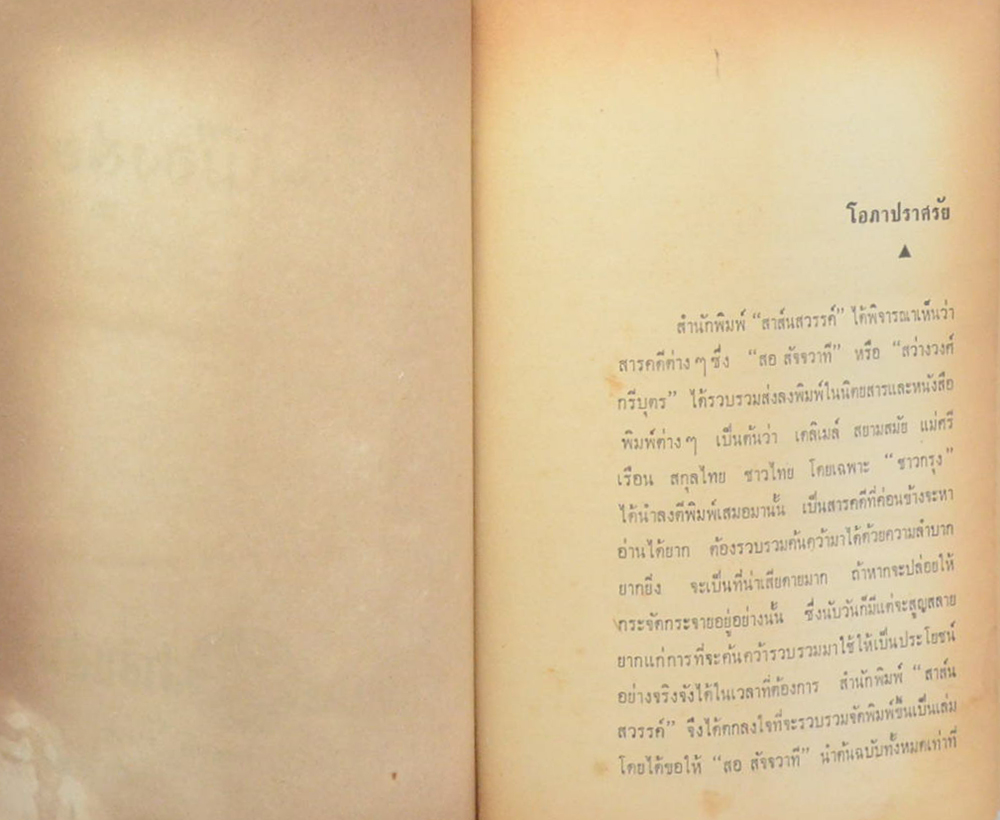 โอภาปราศรัย
สำนักพิมพ์ “สาส์นสวรรค์” ได้พิจารณาเห็นว่า
สารคดีต่าง ๆ ซึ่ง “สอ สัจจวาที” หรือ “สว่างวงศ์
กรีบุตร” ได้รวบรวมส่งลงพิมพ์ในนิตยสารและหนังสือ
พิมพ์ต่าง ๆ เป็นต้นว่า เดลิเมล์ สยามสมัย แม่ศรี
เรือน สกุลไทย ชาวไทย โดยเฉพาะ “ชาวกรุง”
ได้นำลงตีพิมพ์เสมอมานั้น เป็นสารคดีที่ค่อนข้างจะหา
อ่านได้ยาก ต้องรวบรวมค้นคว้ามาได้ด้วยความลำบาก
ยากยิ่ง จะเป็นที่น่าเสียดายมาก ถ้าหากจะปล่อยให้
กระจัดกระจายอยู่อย่างนั้น ซึ่งนับวันก็มีแต่จะสูญสลาย
ยากแก่การที่จะค้นคว้ารวบรวมมาใช้ให้เป็นประโยชน์
อย่างจริงจังได้ในเวลาที่ต้องการ สำนักพิมพ์ “สาส์น
สวรรค์” จึงได้ตกลงใจที่จะรวบรวมจัดพิมพ์ขึ้นเป็นเล่ม
โดยได้ขอให้ “สอ สัจจวาที” นำต้นฉบับทั้งหมดเท่าที่